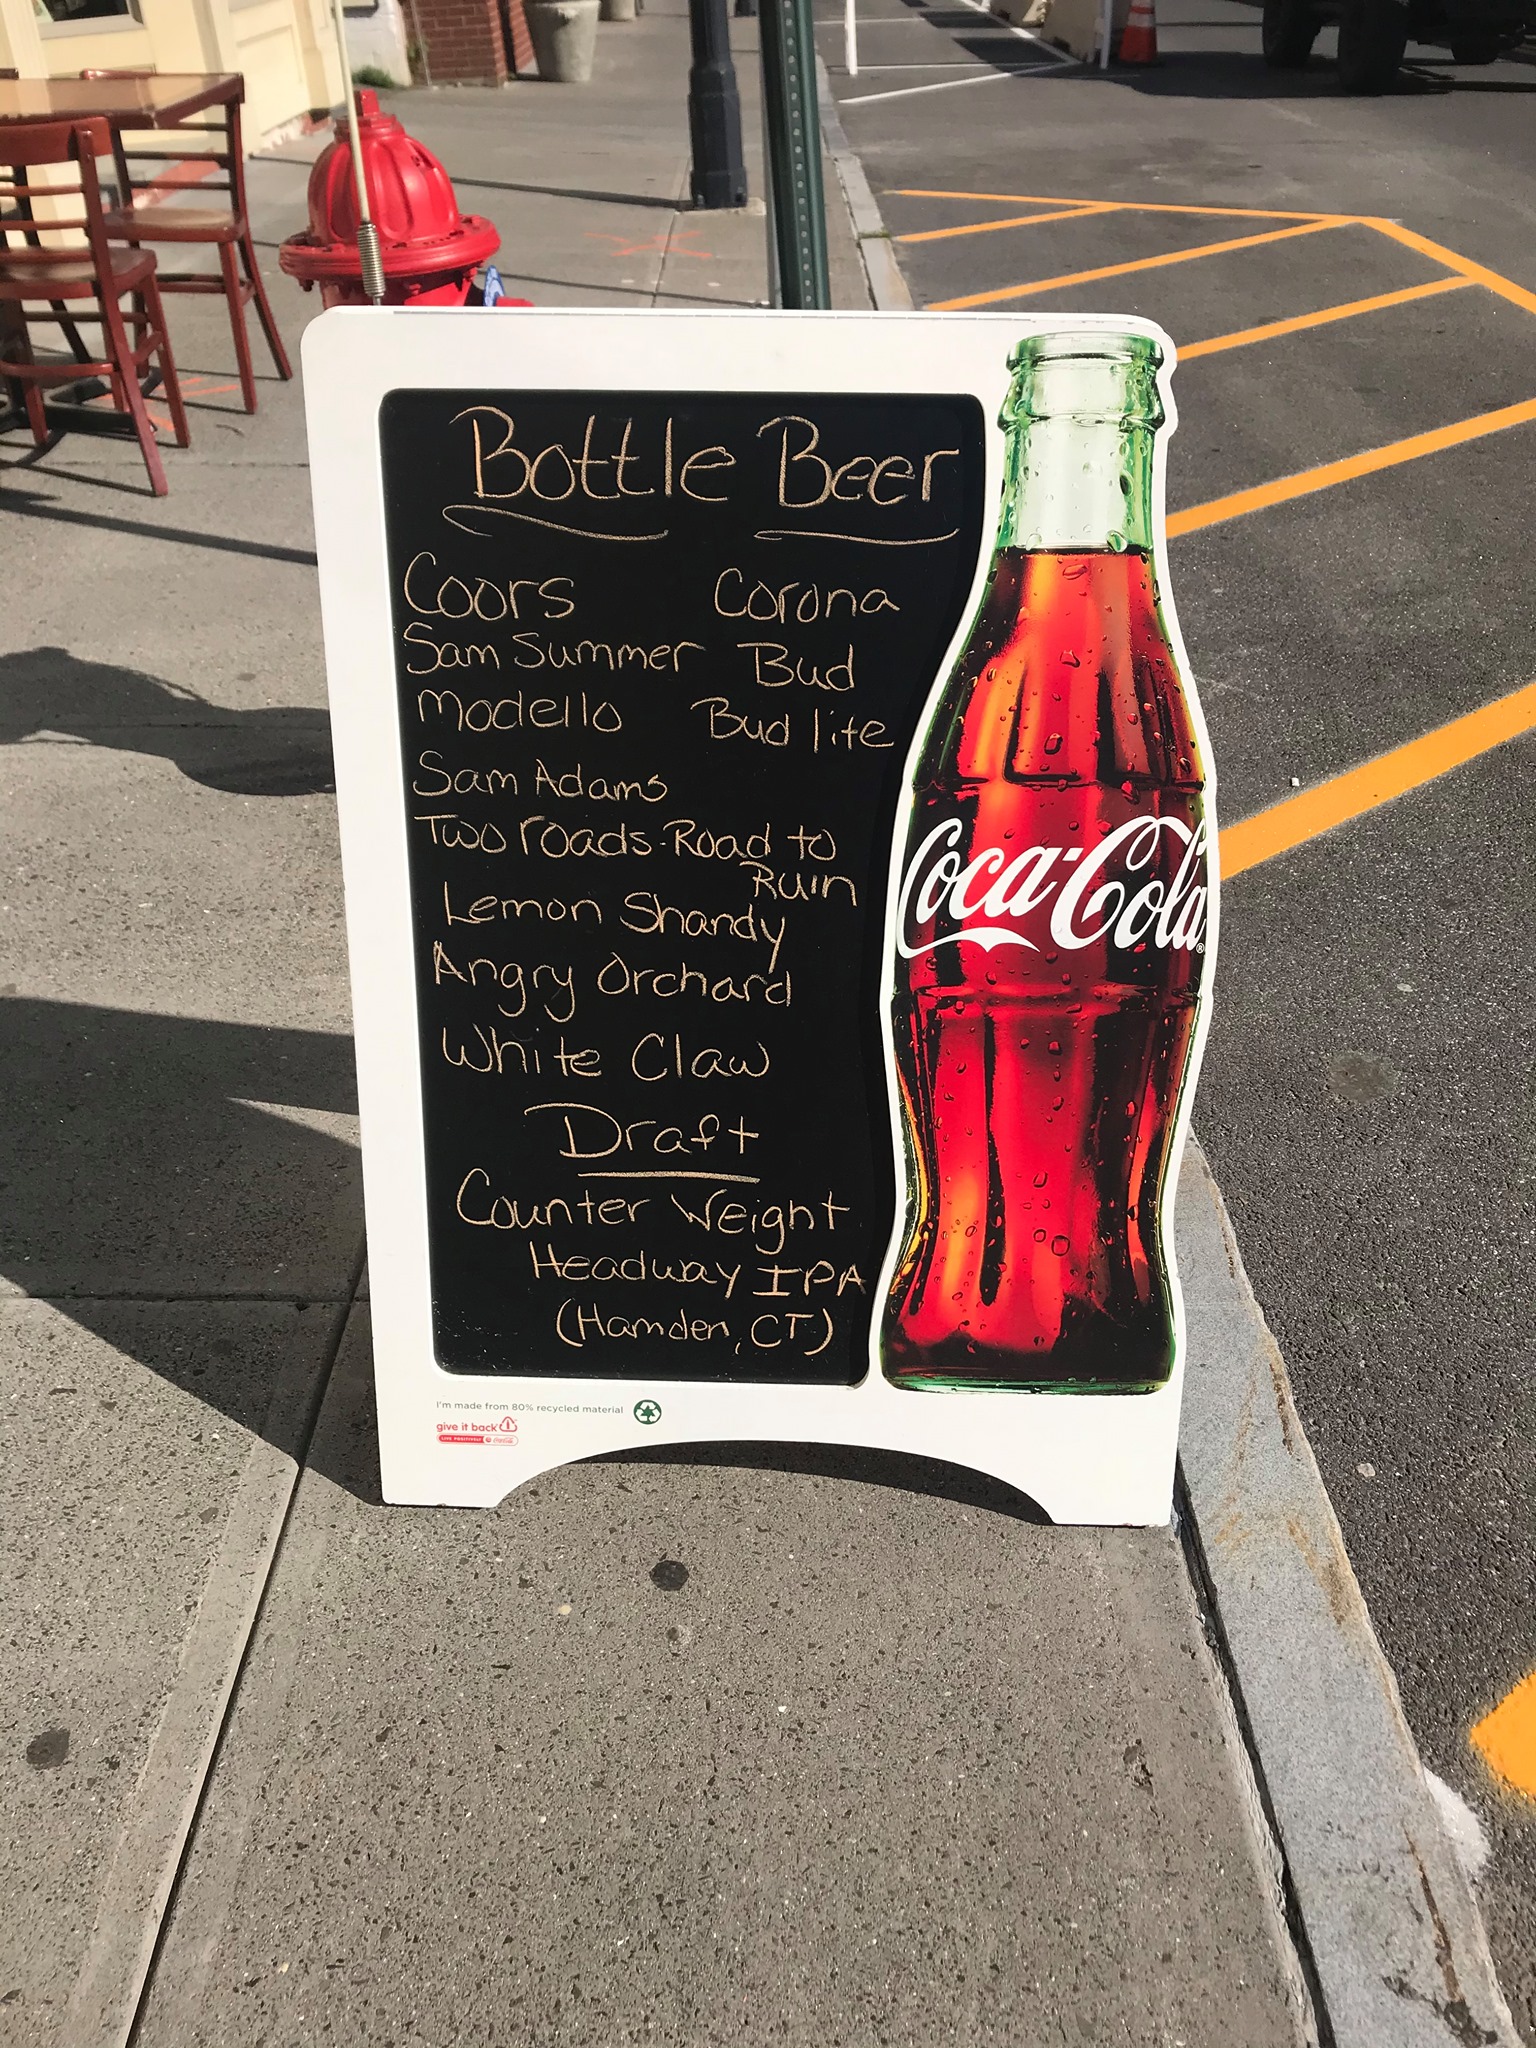 Bottle Beer
Coors Corona
Sam Summer Bud
Modello Bud lite
Sam Adams
Two roads-Road to
Ruin
Lemon Shandy
Angry Orchard
White Claw
Draft
Counter Weight
Headway IPA
(Hamden, CT)
Coca-Cola®
I'm made from 80% recycled material
give it back
LIVE POSITIVELY Coca-Cola